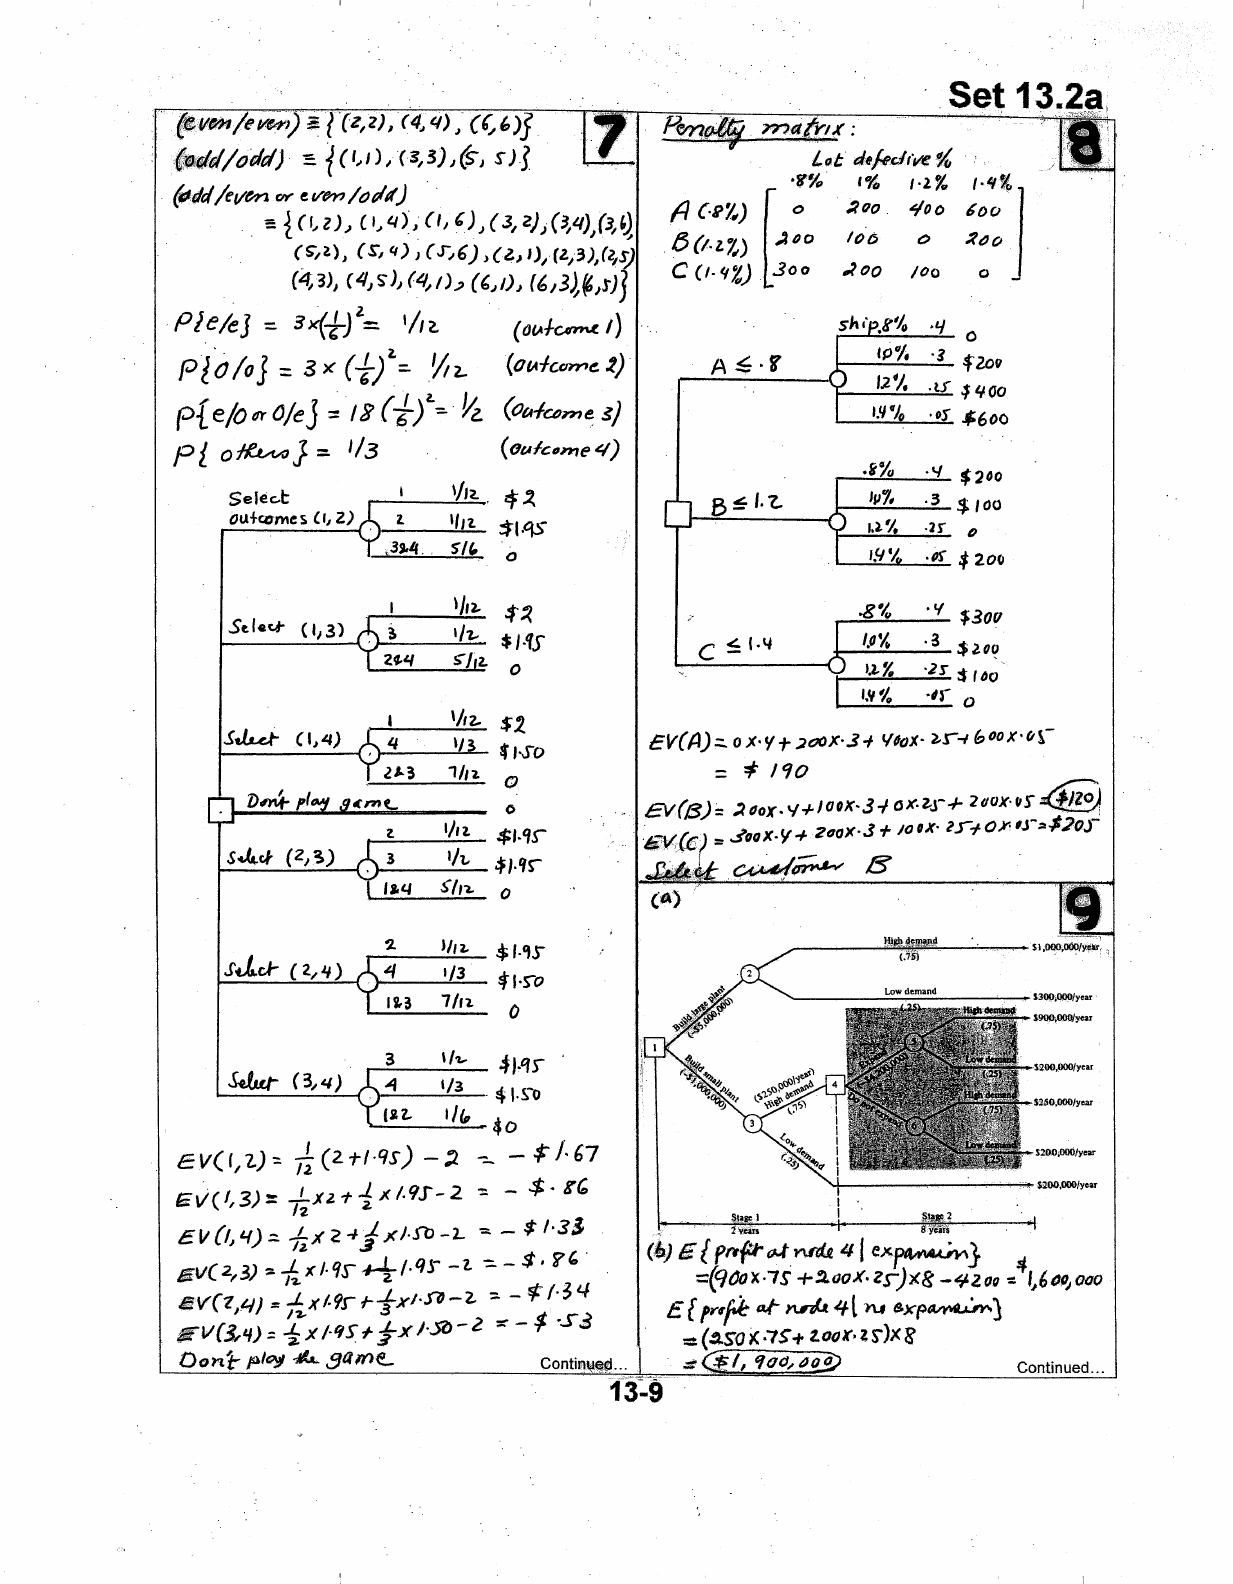 Set 13.2a
7
(even/even) ≡ {(2,2), (4,4), (6,6)}
(odd/odd) ≡ {(1,1), (3,3), (5,5)}
(odd/even or even/odd)
≡ {(1,2), (1,4), (1,6), (3,2), (3,4), (3,6)
(5,2), (5,4), (5,6), (2,1), (2,3), (2,5)
(4,3), (4,5), (4,1), (6,1), (6,3), (6,5)}
P{e/e} = 3x(1/6)² = 1/12 (outcome 1)
P{o/o} = 3 x (1/6)² = 1/12 (outcome 2)
P{e/o or o/e} = 18 (1/6)² = 1/2 (outcome 3)
P{others} = 1/3 (outcome 4)
Select
outcomes (1,2)
1 1/12 $2
2 1/12 $1.95
3&4 5/6 0
Select (1,3)
1 1/12 $2
3 1/2 $1.95
2&4 5/12 0
Select (1,4)
1 1/12 $2
4 1/3 $1.50
2&3 7/12 0
Don't play game 0
Select (2,3)
2 1/12 $1.95
3 1/2 $1.95
1&4 5/12 0
Select (2,4)
2 1/12 $1.95
4 1/3 $1.50
1&3 7/12 0
Select (3,4)
3 1/2 $1.95
4 1/3 $1.50
1&2 1/6 $0
EV(1,2) = 1/12 (2+1.95) - 2 = - $1.67
EV(1,3) = 1/12 x 2 + 1/2 x 1.95 - 2 = - $.86
EV(1,4) = 1/12 x 2 + 1/3 x 1.50 - 2 = - $1.33
EV(2,3) = 1/12 x 1.95 + 1/2 1.95 - 2 = - $.86
EV(2,4) = 1/12 x 1.95 + 1/3 x 1.50 - 2 = - $1.34
EV(3,4) = 1/2 x 1.95 + 1/3 x 1.50 - 2 = - $.53
Don't play the game
Continued...
8
Penalty matrix:
Lot defective %
.8% 1% 1.2% 1.4%
A (.8%) 0 200 400 600
B (1.2%) 200 100 0 200
C (1.4%) 300 200 100 0
A ≤ .8
ship .8% .4 0
1.0% .3 $200
1.2% .25 $400
1.4% .05 $600
B ≤ 1.2
.8% .4 $200
1.0% .3 $100
1.2% .25 0
1.4% .05 $200
C ≤ 1.4
.8% .4 $300
1.0% .3 $200
1.2% .25 $100
1.4% .05 0
EV(A) = 0 x .4 + 200 x .3 + 400 x .25 + 600 x .05
= $190
EV(B) = 200 x .4 + 100 x .3 + 0 x .25 + 200 x .05 = $120
EV(C) = 300 x .4 + 200 x .3 + 100 x .25 + 0 x .05 = $205
Select customer B
9
(a)
High demand
(.75)
$1,000,000/year
2
Build large plant
(-$5,000,000)
Low demand
(.25)
$300,000/year
High demand
(.75)
$900,000/year
1
5
Expand
(-$4,200,000)
Low demand
(.25)
$200,000/year
Build small plant
(-$1,000,000)
($250,000/year)
High demand
(.75)
4
Do not expand
High demand
(.75)
$250,000/year
3
Low demand
(.25)
$200,000/year
Low demand
(.25)
$200,000/year
Stage 1
2 years
Stage 2
8 years
(b) E{profit at node 4 | expansion}
= (900 x .75 + 200 x .25) x 8 - 4200 = $1,600,000
E{profit at node 4 | no expansion}
= (250 x .75 + 200 x .25) x 8
= $1,900,000
Continued...
13-9